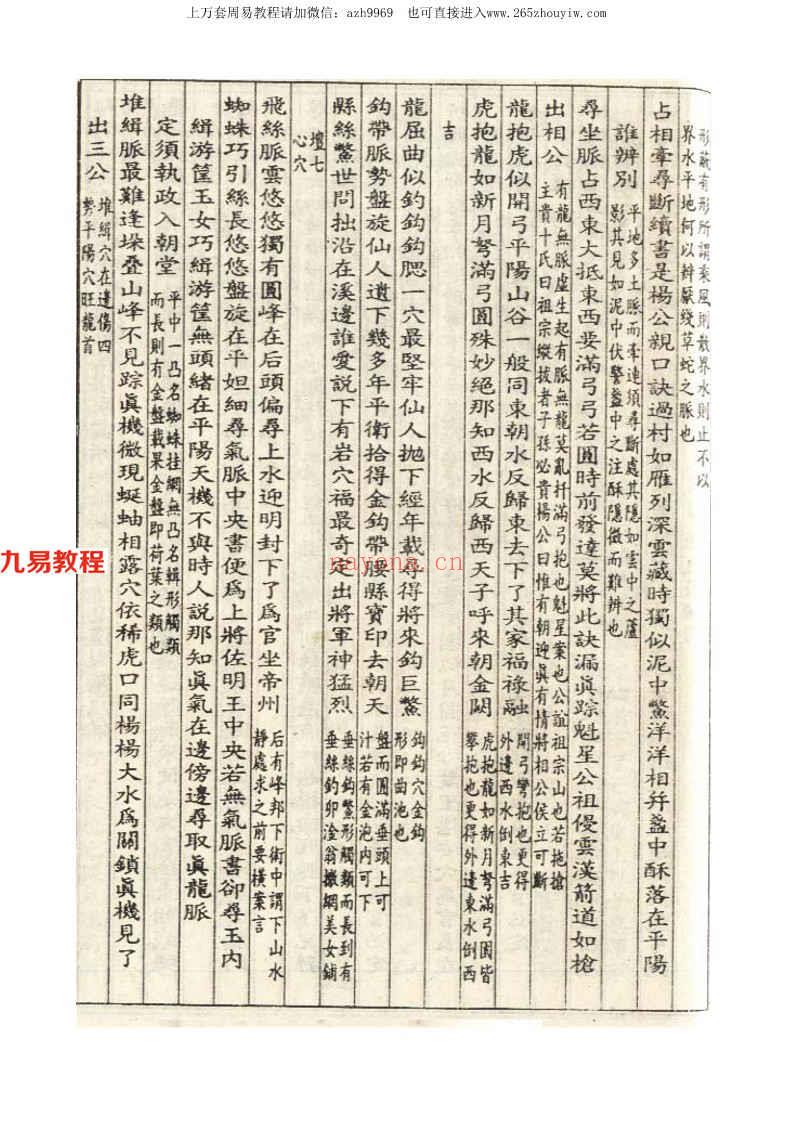 上万套周易教程请加微信：azh9969 也可直接进入www.265zhouyiw.com
形蔽有形所謂乘風則散界水則止不以
界水平地何以辨厭綫草蛇之脈也
占相牽尋斷續書是楊公親口訣過村如雁列深雲藏時獨似泥中鱉洋洋相并盞中酥落在平陽
誰辨別 平地多土脈而牽連須尋斷處其隱如雲中之蘆
影其見如泥中伏鱉盞中之注酥隱微而難辨也
尋坐脈占西東大抵東西要滿弓弓若圓時前發達莫將此訣漏眞踪魁星公祖侵雲漢箭道如槍
出相公 有龍無脈虛生起有脈無龍莫亂扦滿弓抱也魁星案也公誼祖宗山也若拖槍
主貴十氏曰祖宗縱拔者子孫必貴楊公曰惟有朝迎眞有情將相公侯立可斷
龍抱虎似開弓平陽山谷一般同東朝水反歸東去下了其家福祿融 開弓彎抱也更得
外邊西水倒東吉
虎抱龍如新月弩滿弓圓殊妙絕那知西水反歸西天子呼來朝金闕 虎抱龍如新月弩滿弓圓皆
攀抱也更得外邊東水倒西
吉
龍屈曲似釣鈎鈎腮一穴最堅牢仙人拋下經年載尋得將來鈎巨鱉 鈎鈎穴金鈎
形即曲池也
鈎帶脈勢盤旋仙人遺下幾多年平衛拾得金鈎帶腰縣寶印去朝天 盤而圓滿垂頭上可
汁若有金泡内可下
縣絲鱉世問拙沿在溪邊誰愛説下有岩穴福最奇定出將軍神猛烈 垂絲鈎鱉形觸類而長到有
垂絲釣卯淦翁撒網美女鋪
壇七
心穴
飛絲脈雲悠悠獨有圓峰在后頭偏尋上水迎明封下了爲官坐帝州 后有峰邦下術中謂下山水
靜處求之前要橫案言
蜘蛛巧引絲長悠悠盤旋在平妲細尋氣脈中央書便爲上將佐明王中央若無氣脈書卻尋玉内
緝游筐玉女巧緝游筐無頭緒在平陽天機不與時人説那知眞氣在邊傍邊尋取眞龍脈
定須執政入朝堂 平中一凸名蜘蛛挂網無凸名輯形觸類
而長則有金盤載果金盤即荷葉之類也
堆緝脈最難逢垛叠山峰不見踪眞機微現蜒蚰相露穴依稀虎口同楊楊大水爲關鎖眞機見了
出三公 堆緝穴在邊傷四
勢平陽穴旺龍首
九易教程
nayona.cn